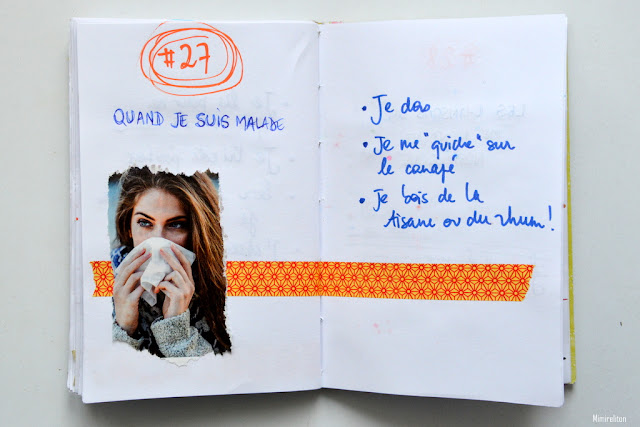 #27
QUAND JE SUIS MALADE
• Je dors
• Je me "quiche" sur
le canapé
• Je bois de la
tisane ou du rhum!
Mimireliton